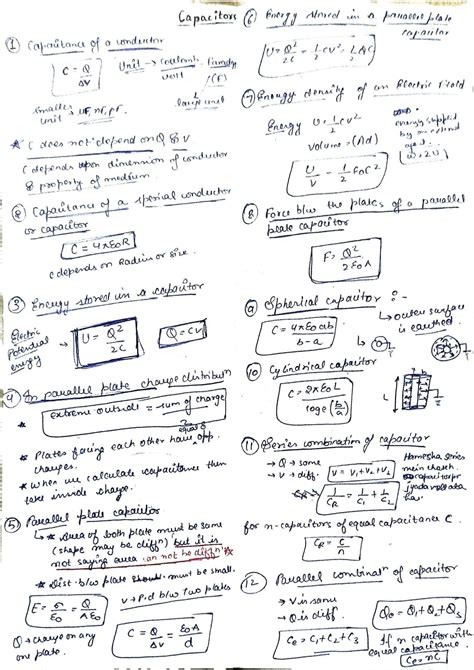 Capacitors
① Capacitance of a conductor
C = Q/ΔV
Unit → Coulomb/volt → Farady (F)
smallest unit μF, nF, pF.
large unit
* C does not depend on Q & V
C depends upon dimension of conductor
& property of medium.
② Capacitance of a spherical conductor
or capacitor
C = 4πε₀R
C depends on Radius or Size.
③ Energy stored in a capacitor
Electric Potential energy → U = Q²/2C
Q = CV
④ In parallel plate charge distribution
extreme outside = sum of charge
equal &
* Plates facing each other have opp. charges.
* When we calculate capacitance then
take inside charge.
⑤ Parallel plate capacitor
* Area of both plate must be same
(shape may be diffⁿ) but it is
not saying area can not be diffⁿ
* Dist. b/w plate should must be small.
E = σ/ε₀ = Q/Aε₀
V → P.d b/w two plates
Q → charge on any
one plate.
C = Q/V = ε₀A/d
⑥ Energy stored in a parallel plate
capacitor
U = Q²/2C = 1/2 CV²
⑦ Energy density of an Electric Field
Energy U = 1/2 CV²
volume = (Ad)
energy supplied
by an external
W = 2U
⑧ Force b/w the plates of a parallel
plate capacitor
F = Q²/2ε₀A
⑨ Spherical capacitor :-
C = 4πε₀ab/b-a
→ outer surface
is earthed.
⑩ Cylindrical capacitor
C = 2πε₀L/loge(b/a)
L
⑪ Series combination of capacitor
→ Q → same
→ V → diff.
V = V₁+V₂+V₃
1/CR = 1/C₁ + 1/C₂
Hamesha series
for n-capacitors of equal capacitance C.
CR = C/n
⑫ Parallel combinatⁿ of capacitor
→ V is same
→ Q is diff.
Q₀ = Q₁+Q₂+Q₃
Ce = C₁+C₂+C₃
If n capacitor with
equal capacitance
Ce = nC